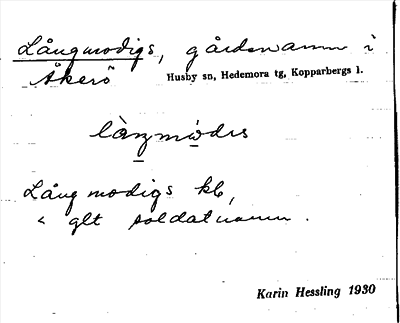 Långmodigs, gårdsnamn i
Åkerö Husby sn, Hedemora tg, Kopparbergs l.
làŋmòdɩs
Långmodigs kb,
< glt soldatnamn.
Karin Hessling 1930